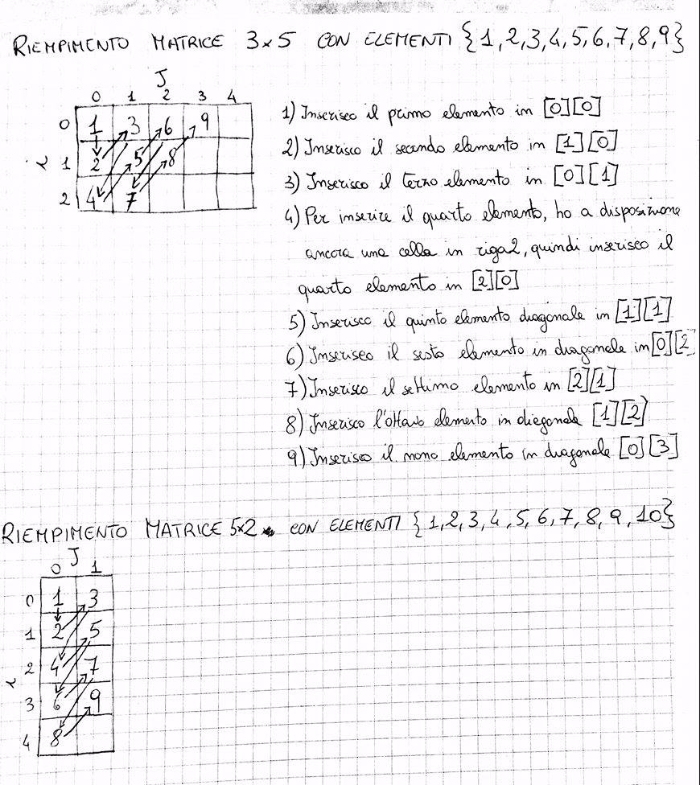 RIEMPIMENTO MATRICE 3x5 CON ELEMENTI {1,2,3,4,5,6,7,8,9}
J
0 1 2 3 4
0 1 3 6 9
i 1 2 5 8
2 4 7
1) Inserisco il primo elemento in [0][0]
2) Inserisco il secondo elemento in [1][0]
3) Inserisco il terzo elemento in [0][1]
4) Per inserire il quarto elemento, ho a disposizione
ancora una cella in riga 2, quindi inserisco il
quarto elemento in [2][0]
5) Inserisco il quinto elemento diagonale in [1][1]
6) Inserisco il sesto elemento in diagonale in [0][2]
7) Inserisco il settimo elemento in [2][1]
8) Inserisco l'ottavo elemento in diagonale [1][2]
9) Inserisco il nono elemento in diagonale [0][3]
RIEMPIMENTO MATRICE 5x2 CON ELEMENTI {1,2,3,4,5,6,7,8,9,10}
J
0 1
0 1 3
1 2 5
i 2 4 7
3 6 9
4 8